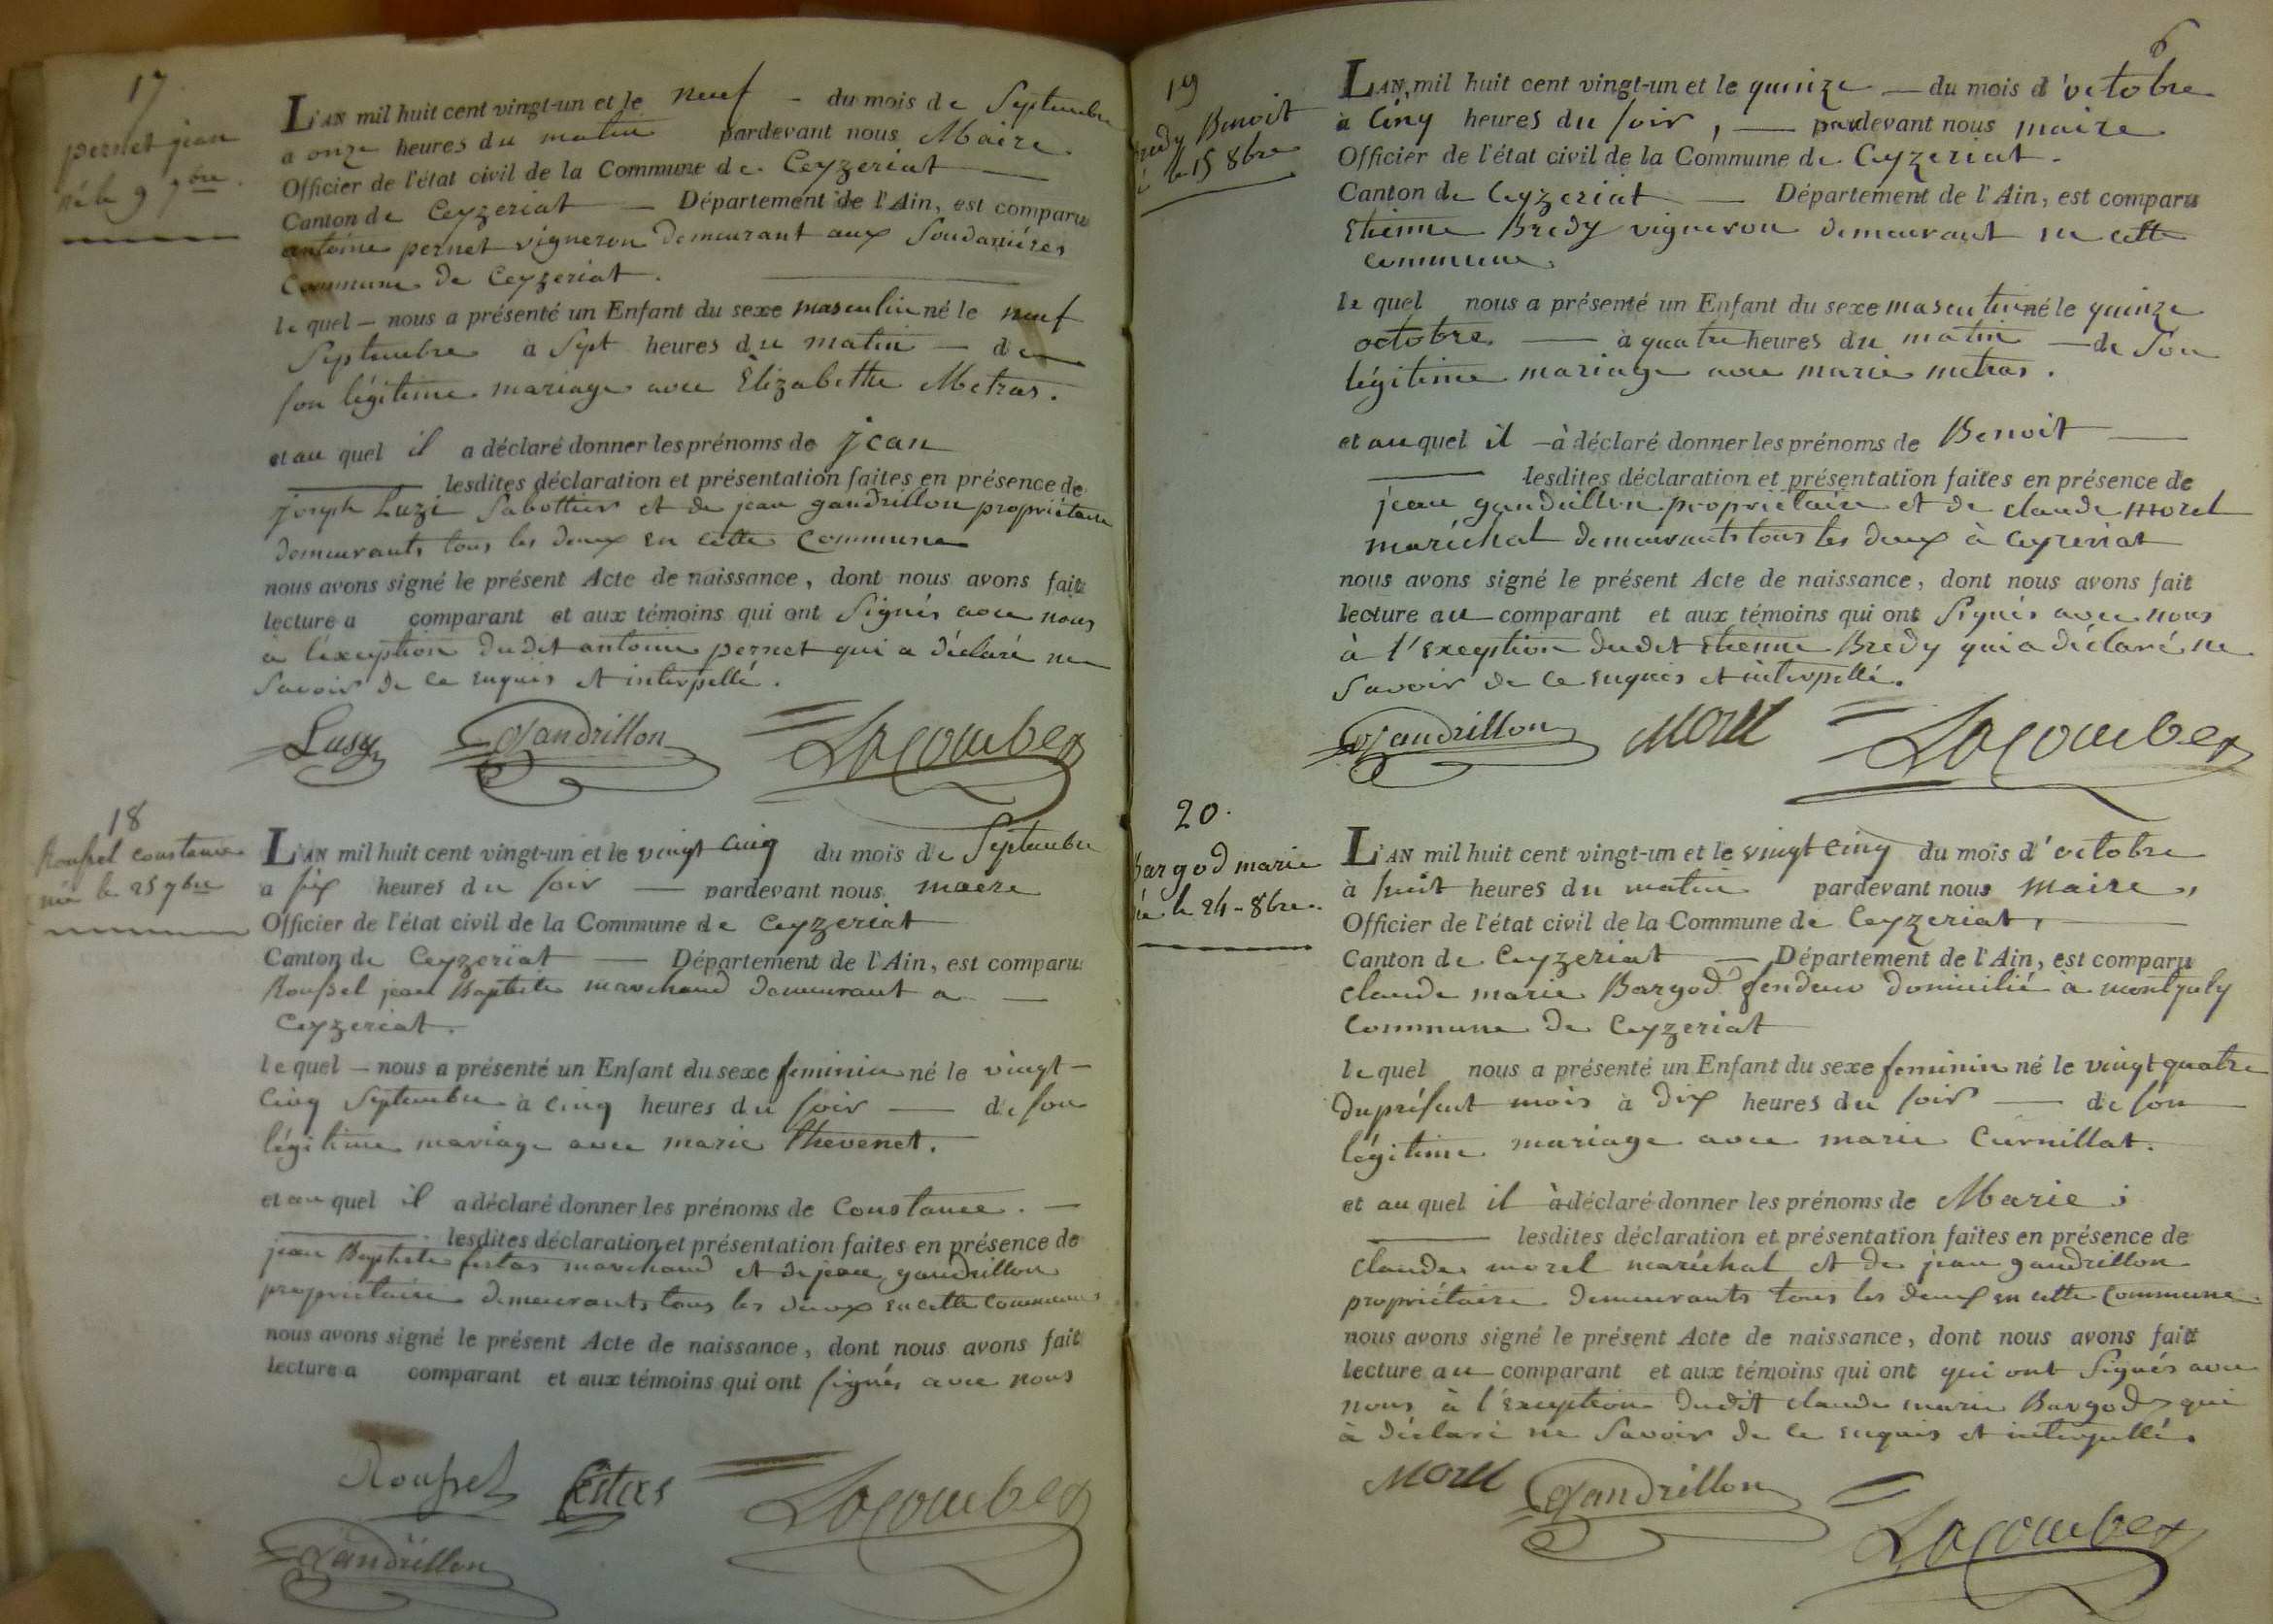 17
pernet jean
né le 9 7bre.
L'AN mil huit cent vingt-un et le neuf - du mois de Septembre
a onze heures du matin pardevant nous Maire
Officier de l'état civil de la Commune de Ceyzeriat
Canton de Ceyzeriat — Département de l'Ain, est comparu
antoine pernet vigneron demeurant aux Soudanières
Commune de Ceyzeriat.
le quel - nous a présenté un Enfant du sexe masculin né le neuf
Septembre a Sept heures du matin — de
son légitime mariage avec Elizabethe Metras.
et au quel il a déclaré donner les prénoms de jean
lesdites déclaration et présentation faites en présence de
joseph Luzi Sabottier et de jean gandrillon propriétaire
demeurants tous les deux en cette Commune
nous avons signé le présent Acte de naissance, dont nous avons fait
lecture a comparant et aux témoins qui ont Signés avec nous
à l'exeption dudit antoine pernet qui a déclaré ne
Savoir de ce enquis et interpellé.
Lusy Gandrillon Lacombe
18
Roussel constance
née le 25 7bre
L'AN mil huit cent vingt-un et le vingt cinq du mois de Septembre
a six heures du soir — pardevant nous maire
Officier de l'état civil de la Commune de Ceyzeriat
Canton de Ceyzeriat — Département de l'Ain, est comparu
Roussel jean Baptiste marchand demeurant a —
Ceyzeriat.
le quel - nous a présenté un Enfant du sexe feminin né le vingt-
Cinq Septembre a cinq heures du soir — de son
légitime mariage avec marie thevenet.
et au quel il a déclaré donner les prénoms de Constance. —
lesdites déclaration et présentation faites en présence de
jean Baptiste festas marchand et de jean gandrillon
propriétaire demeurants tous les deux en cette commune
nous avons signé le présent Acte de naissance, dont nous avons fait
lecture a comparant et aux témoins qui ont signés avec nous
Roussel festas Lacombe
Gandrillon
6
19
Bredy Benoit
le 15 8bre
L'AN mil huit cent vingt-un et le quinze — du mois d'octobre
a Cinq heures du soir, — pardevant nous maire
Officier de l'état civil de la Commune de Ceyzeriat.
Canton de Ceyzeriat — Département de l'Ain, est comparu
Etienne Bredy vigneron demeurant en cette
commune.
le quel nous a présenté un Enfant du sexe masculin né le quinze
octobre — à quatre heures du matin — de Son
légitime mariage avec marie metras.
et au quel il — à déclaré donner les prénoms de Benoit —
lesdites déclaration et présentation faites en présence de
jean gandrillon propriétaire et de claude morel
maréchal demeurants tous les deux à Ceyzeriat
nous avons signé le présent Acte de naissance, dont nous avons fait
lecture au comparant et aux témoins qui ont Signés avec nous
à l'exeption dudit Etienne Bredy qui a déclaré ne
Savoir de ce enquis et interpellé.
Gandrillon Morel Lacombe
20.
Bargod marie
née le 24 - 8bre.
L'AN mil huit cent vingt-un et le vingt cinq du mois d'octobre
à huit heures du matin pardevant nous maire,
Officier de l'état civil de la Commune de Ceyzeriat,
Canton de Ceyzeriat — Département de l'Ain, est comparu
claude marie Bargod fendeur domicilié à montjuly
Commune de Ceyzeriat
le quel nous a présenté un Enfant du sexe feminin né le vingt quatre
du présent mois à dix heures du soir — de son
légitime mariage avec marie Curnillat.
et au quel il à déclaré donner les prénoms de Marie;
lesdites déclaration et présentation faites en présence de
claude morel maréchal et de jean gandrillon
propriétaire demeurants tous les deux en cette Commune.
nous avons signé le présent Acte de naissance, dont nous avons fait
lecture au comparant et aux témoins qui ont qui ont Signés avec
nous à l'exeption dudit claude marie Bargod qui
à déclaré ne Savoir de ce enquis et interpellé.
Morel Gandrillon Lacombe